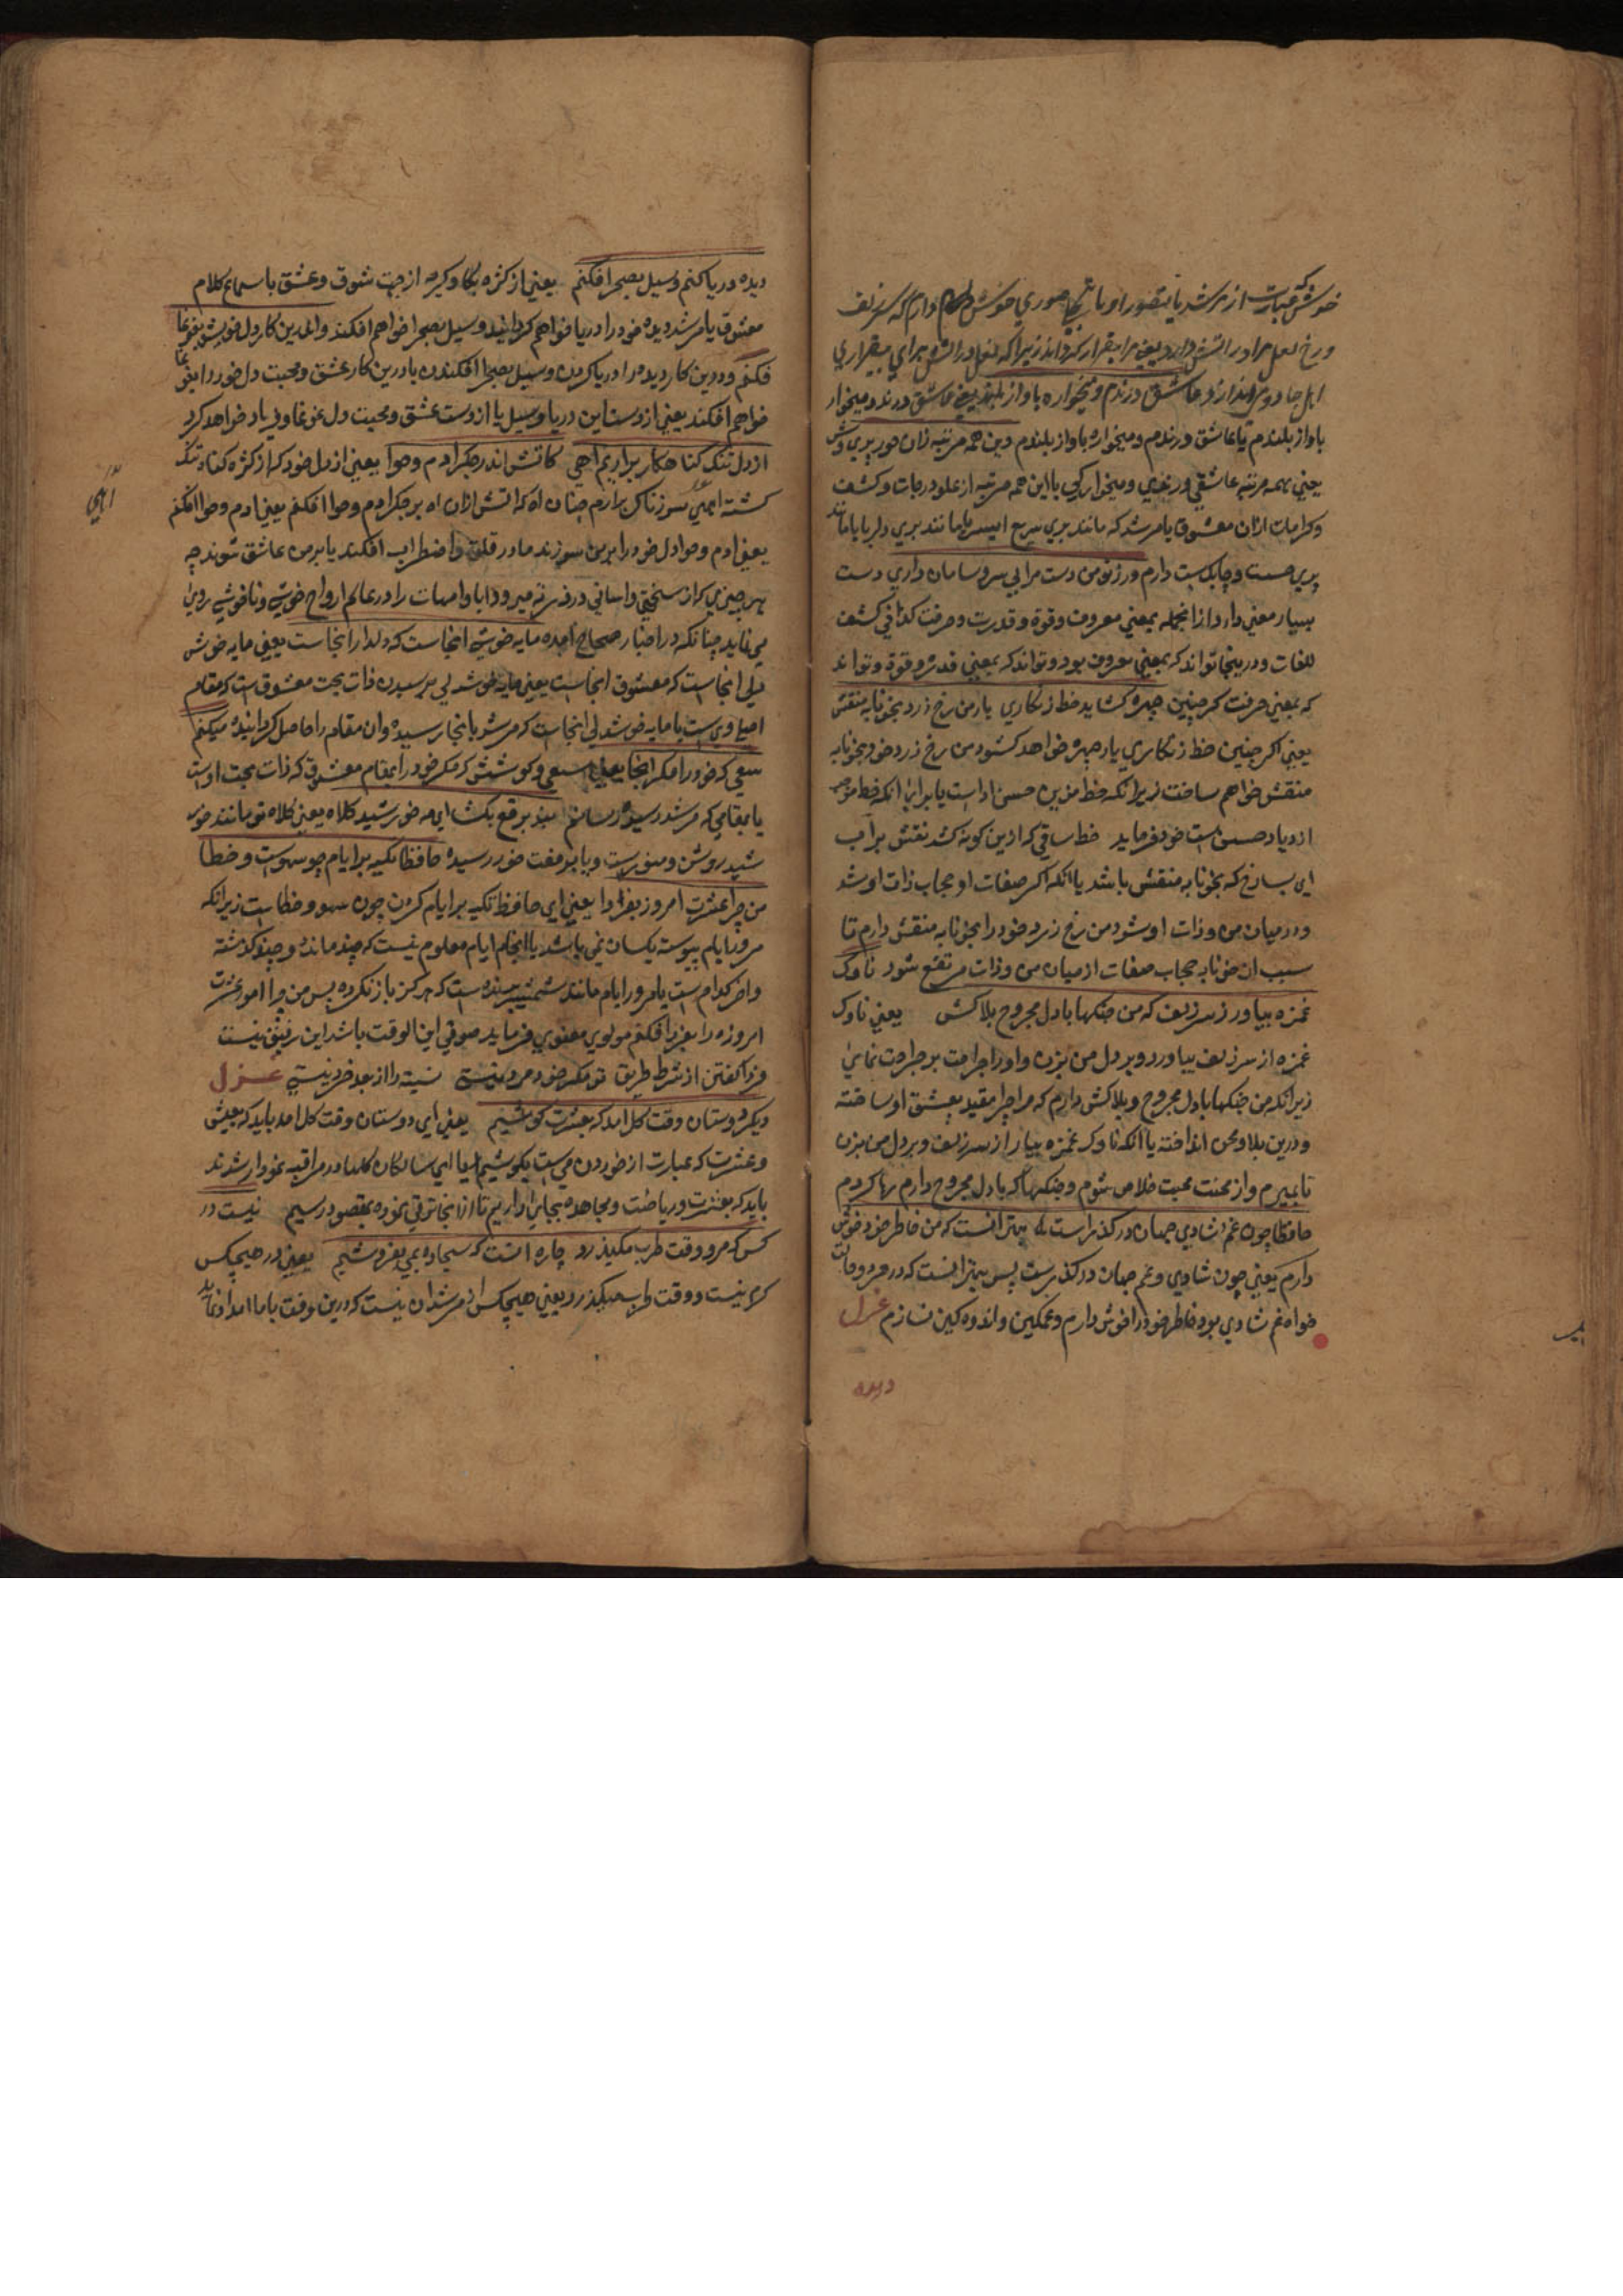 خوش عبارت از مرشد یا بتصور او یا تجلی صوری خوش دارم که سر زلف
ورخ لعل مرا در اتش دارد یعنی مرا بیقرار کرداند زیرا که نعل در اتش برای بیقراری
عاشق ورندم ومیخواره باواز بلند یعنی عاشق ورند ومیخوار
باواز بلندم یا عاشق ورندم ومیخواره باواز بلندم وین همه مرتبه زان حور پری وش
یعنی همه مرتبه عاشقی ورندی ومیخوارکی با این همه مرتبه از علو درجات وکشف
وکرامات ازان معشوق یا مرشد که مانند پری سریع السیر یا مانند پری دلربا باماند
پری حست وچابکست دارم ور زتو من دست مرا بی سر وسامان داری دست
بسیار معنی دارد ازانجمله بمعنی معروف وقوة وقدرت وحرفت کذا فی کشف
للغات ودرینجا تواند که بمعنی معروف بود وتواند که بمعنی قدرة وقوة وتواند
که بمعنی حرفت کر چنین چهره کشاید خط زنکاری یار من رخ زرد بخونابه منقش
یعنی اکر چنین خط زنکاری یار چهره خواهد کشود من رخ زرد خود بخونابه
منقش خواهم ساخت زیرانکه خط مزید حسن اداست یا برای انکه خط موجب
ازدیاد حسن است خود فرماید خط ساقی که ازین کونه کشد نقش بر آب
ای بسا رخ که بخونابه منقش باشد یا انکه اکر صفات او حجاب ذات او شد
ودر میان من وذات او شود من رخ زرد خود را بخونابه منقش دارم تا
سبب ان خونابه حجاب صفات از میان من وذات مرتفع شود ناوک
غمزه بیاور زسر زلف که من جنکها با دل مجروح بلاکش یعنی ناوک
غمزه از سر زلف بیاورد وبر دل من بزن واورا جراحت بر جراحت نمائی
زیرانکه من جنکها با دل مجروح وبلاکش دارم که مرا چرا مقید بعشق او ساخته
ودرین بلا ومحن انداخته یا انکه ناوک غمزه بیار از سر زلف وبر دل من بزن
تا بمیرم واز محنت محبت خلاص شوم وجنکها که با دل مجروح دارم رها کردم
حافظا چون غم وشادی جهان در کذر است بهتر انست که من خاطر خود خوش
دارم یعنی چون شادی وغم جهان در کذرست پس بهتر انست که در هر دو حالت
خواه غم شادی بود خاطر خود را خوش دارم وغمکین واندوه کین نسازم غزل
دیده
دیده دریا کنم وسیل بصحرا فکنم یعنی از کثرة بکا وکریه از جهت شوق وعشق با سماع کلام
معشوق یا مرشد دیده خود را دریا خواهم کردانید وسیل بصحرا خواهم افکند واندرین کار دل خویش بغوغا
فکنم ودرین کار دیده را دریا کردن وسیل بصحرا افکندن یا درین کار عشق ومحبت دل خود را بغوغا
خواهم افکند یعنی از دست این دریا وسیل یا از دست عشق ومحبت دل غوغا وفریاد خواهد کرد
از دل تنک کنا هکار برارم اهی کاتش اندر جکر ادم وحوا یعنی از دل خود که از کثرة کناه تنک
کشته اهی سوزناک برارم چنان اه که اتش ازان اه بر جکر ادم وحوا افکنم یعنی ادم وحوا افکنم
یعنی ادم وحوا دل خود را برین سوزند ما در قلق واضطراب افکند یا بر من عاشق شوند چه
هر چیزی که از سختی واسانی در فرزند میرود ابا وامهات را در عالم ارواح خوشی وناخوشی روی
می نماید چنانکه در اخبار صحاح امده مایه خوشی انجاست که دلدار انجاست یعنی مایه خوش
دلی انجاست که معشوق انجاست یعنی مایه خوشدلی برسیدن ذات بحت معشوق است که مقام
اصلی ویست یا مایه خوشدلی انجاست که مرشد بانجا رسیده وان مقام را حاصل کردانیده میکنم
سعی که خود را مکر انجا یعنی سعی وکوشش که مکر خود را بمقام معشوق که ذات بحت اوست
یا بمقامی که مرشد رسیده رسانم بند برقع بکشا ای مه خورشید کلاه یعنی کلاه تو مانند خور
شید روشن ومنورست ویا بر هفت خور رسیده حافظا تکیه بر ایام چو سهوست وخطا
من چرا عشرت امروز بفردا یعنی ای حافظ تکیه بر ایام کردن چون سهو وخطاست زیرانکه
مرور ایام پیوسته یکسان نمی باشد یا انجام ایام معلوم نیست که چند مانده وچند کذشته
واخر کدام است یا مرور ایام مانند شمشیر برنده است که هرکز باز نکرده پس من چرا امور عشرت
امروزه را بفردا فکنم مولوی معنوی فرماید صوفی ابن الوقت باشد این رفیق نیست
فردا کفتن از شرط طریق تو مکر خود مرد نیستی نسیه را از بعد خرد نیستی غزل
دیکر دوستان وقت کل امد که بعشرت کوشیم یعنی ای دوستان وقت کل امد باید که بعیش
وعشرت که عبارت از خوردن می است بکوشیم یا ای سالکان کلها در مراقبه نمودار شدند
باید که بعشرت وریاضت ومجاهده بجای اریم تا از انجا ترقی نموده بمقصود رسیم نیست در
کس کرم ووقت طرب میکذرد چاره انست که سجاده بمی بفروشیم یعنی در هیچکس
کرم نیست ووقت طرب میکذرد یعنی هیچکس از مرشدان نیست که درین وقت با ما امداد نماید